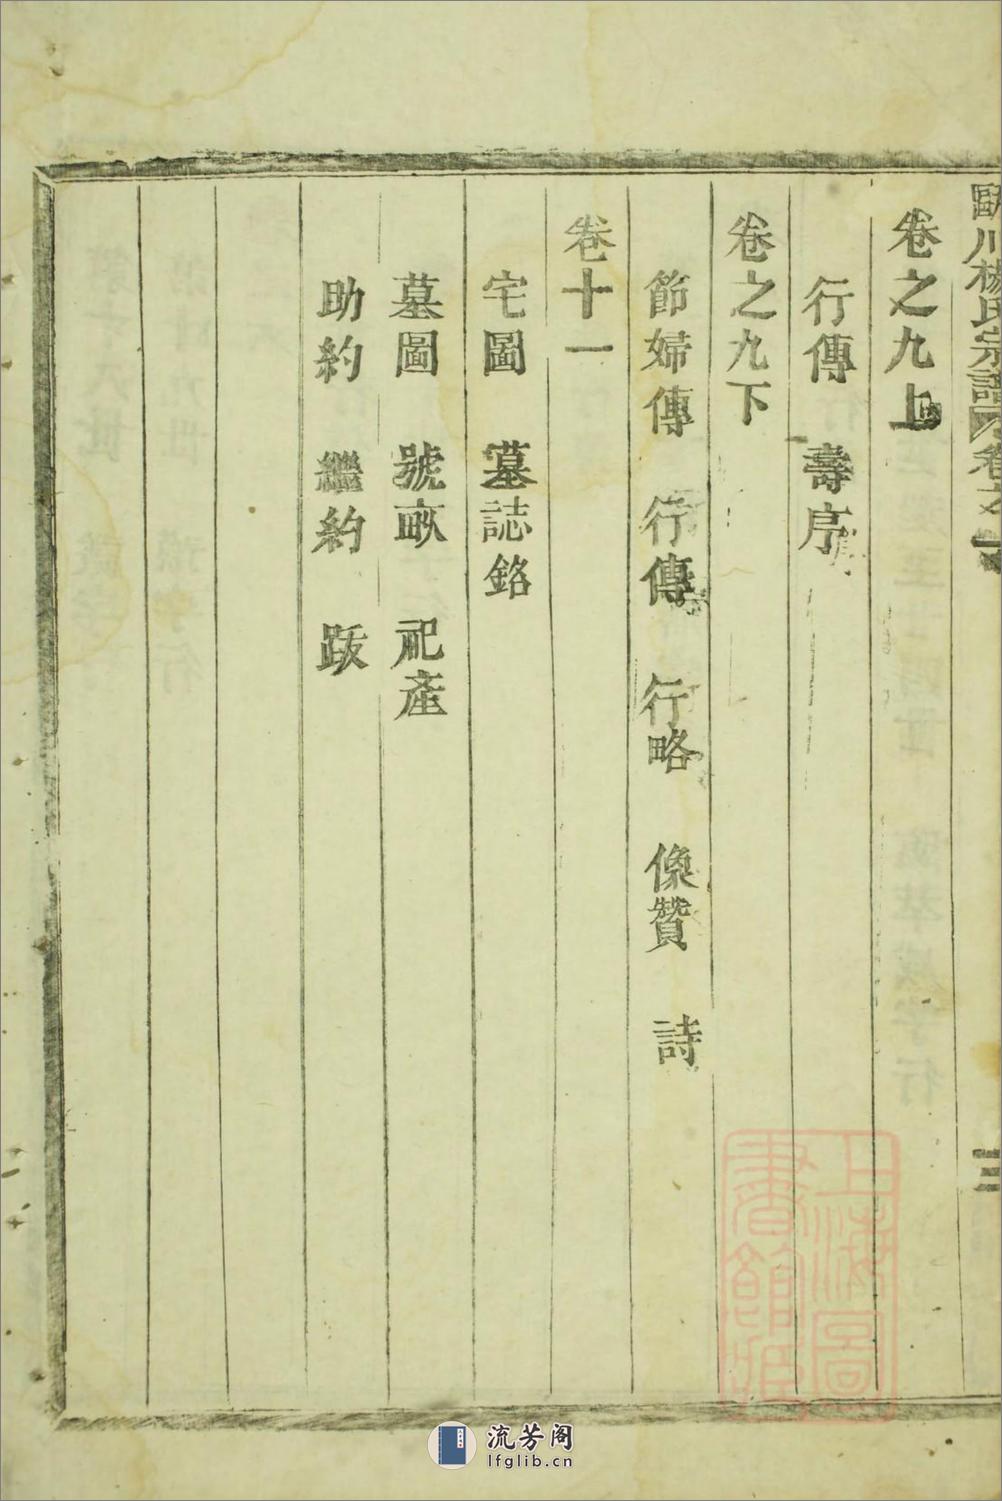 川楊氏宗譜 卷之一
三
卷之九上
行傳 壽序
卷之九下
節婦傳 行傳 行略 像贊 詩
卷十一
宅圖 墓誌銘
墓圖 號畝 祀產
助約 繼約 跋
上海圖書館
流芳阁
lfglib.cn